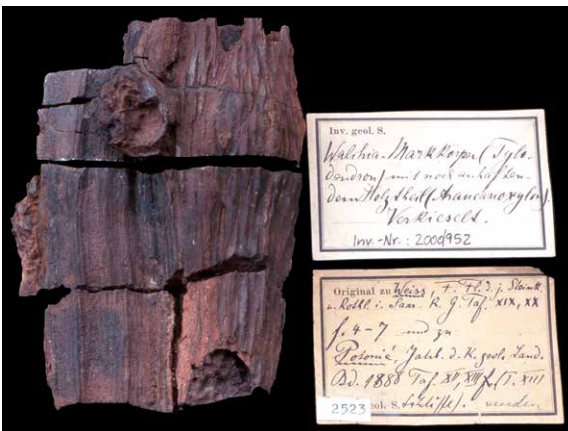 Inv. geol. S.
Walchia-Markkörper (Tylo-
dendron) mit noch anhaften-
dem Holztheil (Araucarioxylon).
Verkieselt.
Inv.-Nr.: 2000/952
Original zu Weiss, Fl. d. j. Steink.
u. Rothl. i. Saar R. G. Taf. XIX, XX
f. 4-7 und zu
Potonié, Jahrb. d. K. geol. Land.
Bd. 1888 Taf. XII, XIII
2523
geol. S. wenden